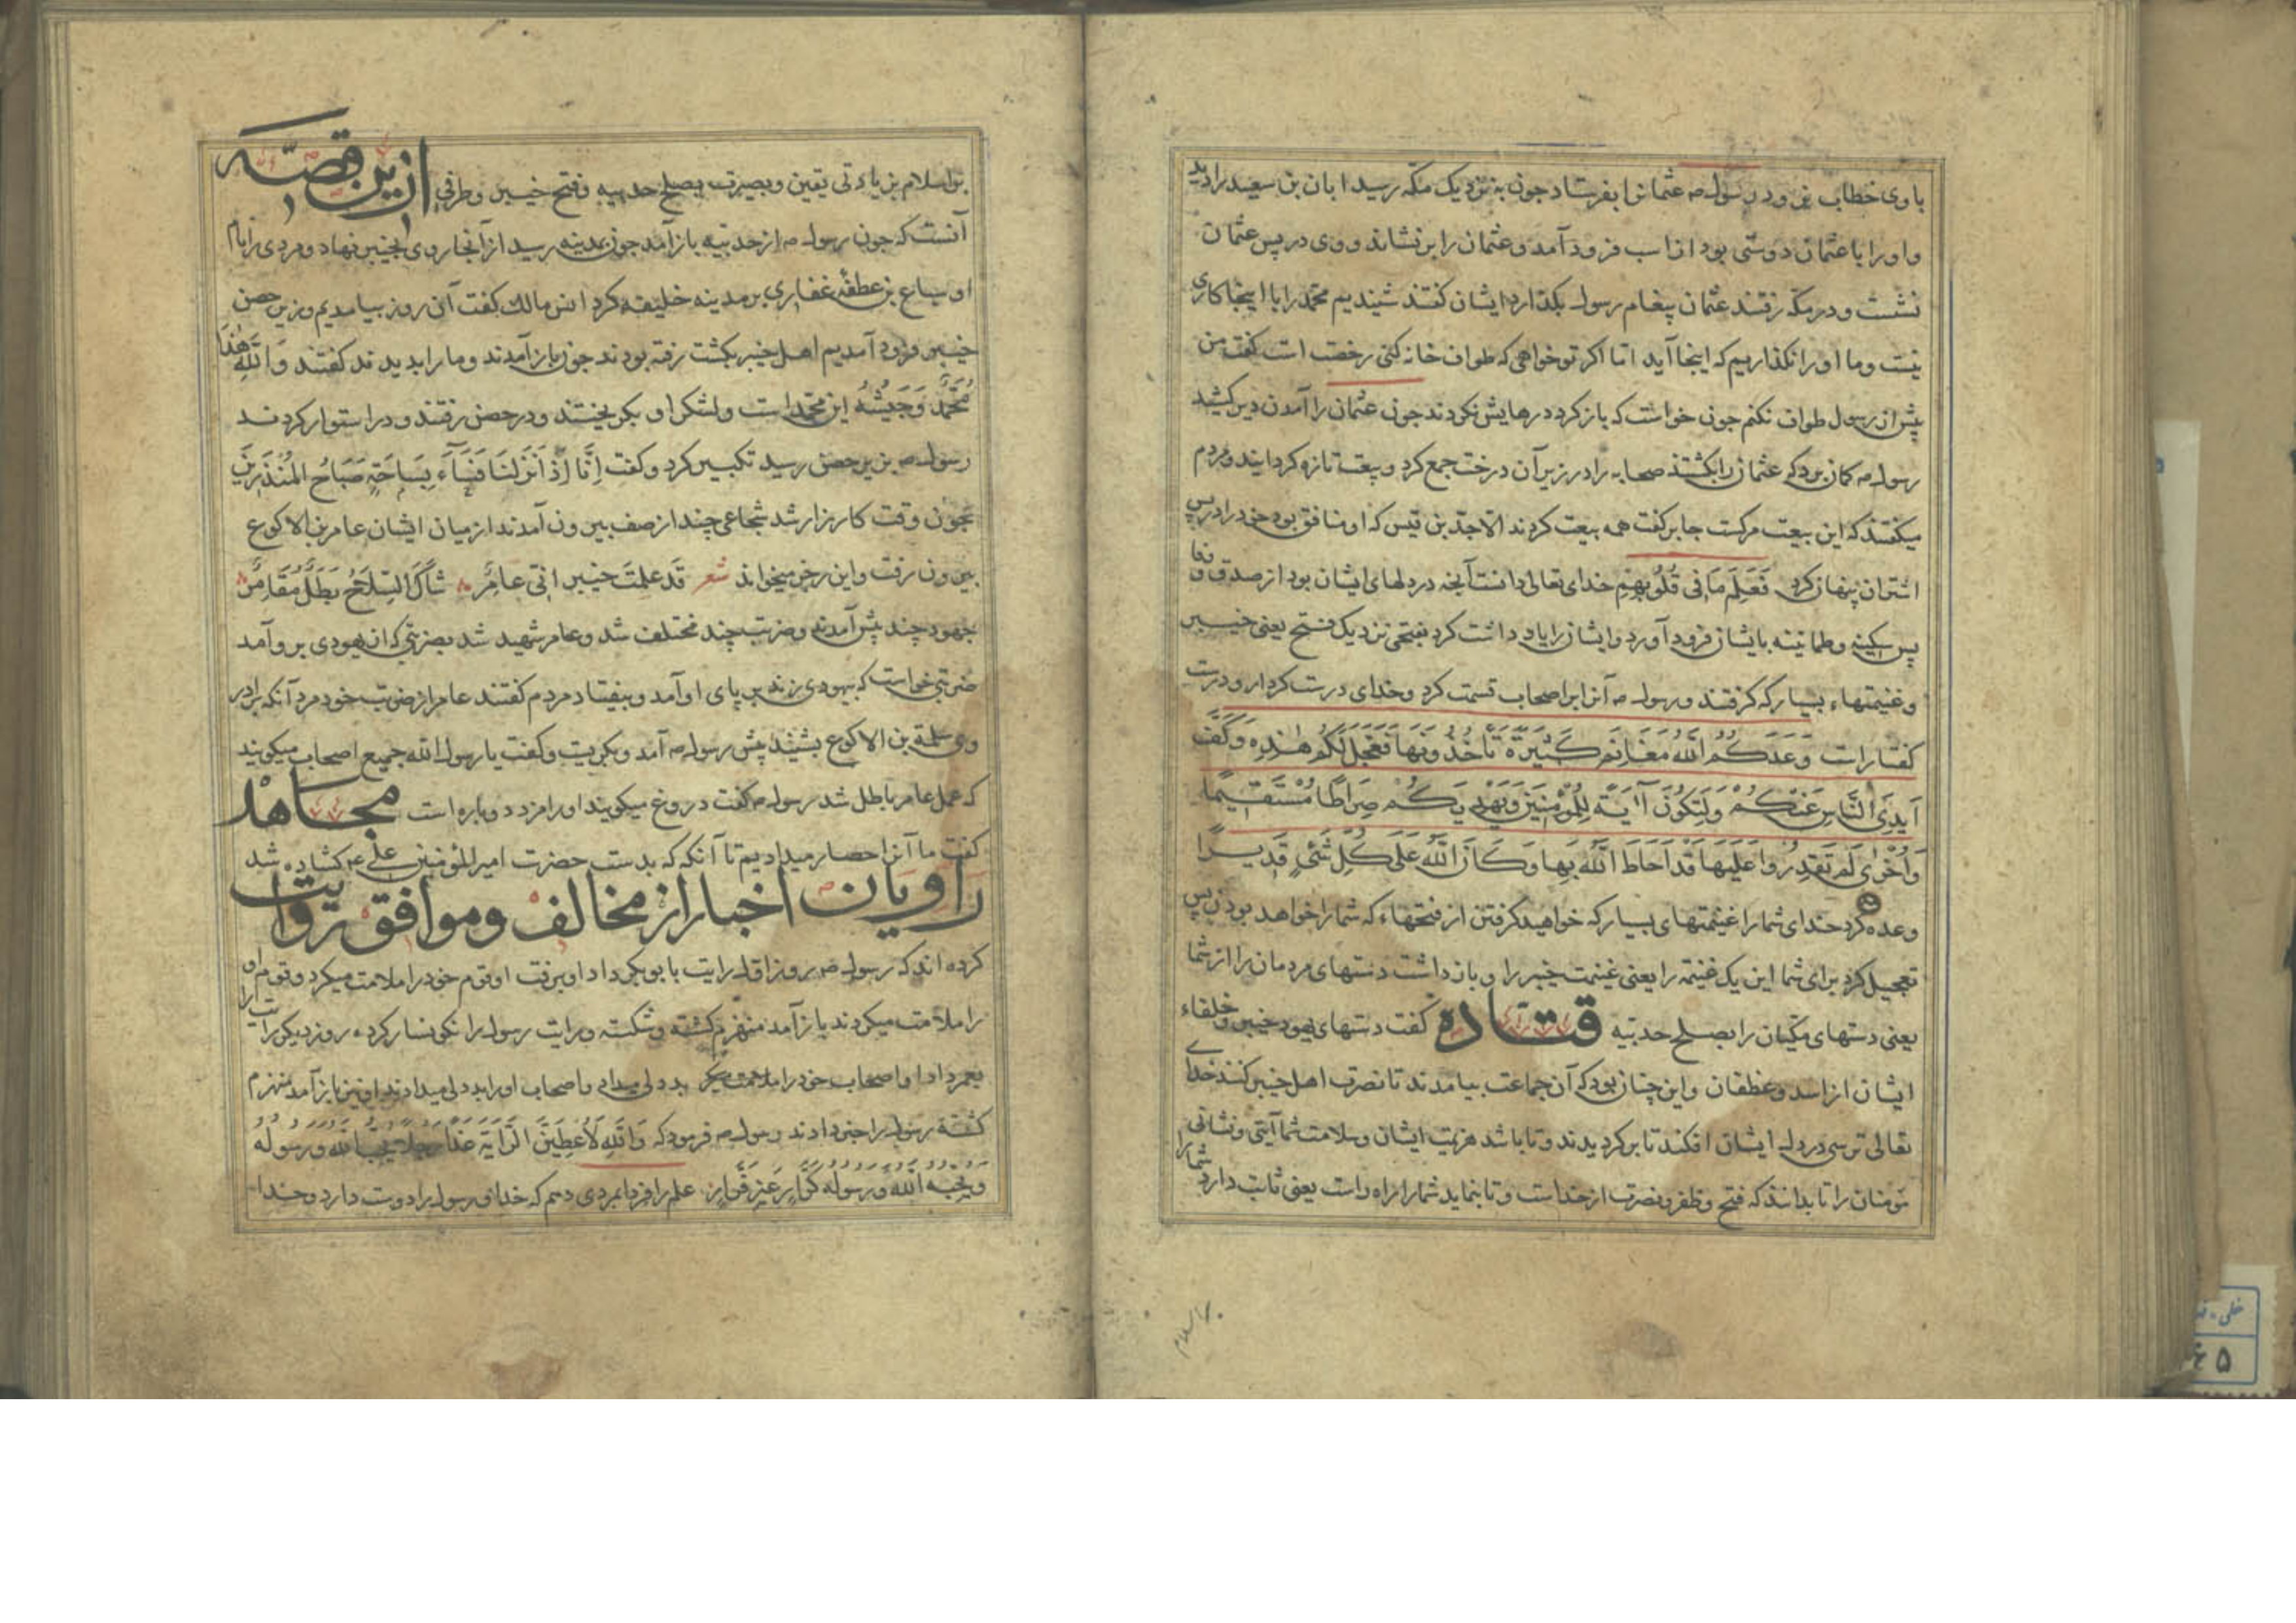 با وی خطاب بن ورد رسول ص عثمان را بفرستاد جون به نزدیک مکه رسید ابان بن سعید را دید
و او را با عثمان دوستی بود از اسب فرود آمد و عثمان را بر نشاند و وی در پس عثمان
نشست و در مکه رفتند عثمان پیغام رسول بکذارد ایشان کفتند شنیدیم محمد را با اینجا کاری
نیست و ما او را نکذاریم که اینجا آید اما اکر تو خواهی که طواف خانه کنی رخصت است کفت من
پیش از رسول طواف نکنم جون خواست که باز کردد رهایش نکردند جون عثمان را آمدن دیر کشید
رسول ص کمان برد که عثمان را بکشتند صحابه را در زیر آن درخت جمع کرد و بیعت تازه کردانید و مردم
میکفتند که این بیعت مرکست جابر کفت همه بیعت کردند الا جد بن قیس که او منافق بود خود را در پس
اشتران پنهان کرد فَعَلِمَ مَا فِی قُلُوبِهِم خدای تعالی دانست آنچه در دلهای ایشان بود از صدق و وفا
پس سکینه و طمانینه بایشان فرود آورد و ایشان را پاداشت کرد بفتحی نزدیک فتح یعنی خیبر
و غنیمتهاء بسیار که کرفتند و رسول ص آنرا بر اصحاب قسمت کرد و خدای درست کردار و درست
کفتار است وَعَدَكُمُ اللهُ مَغَانِمَ كَثِيرَةً تَأْخُذُونَهَا فَعَجَّلَ لَكُمْ هٰذِهِ وَكَفَّ
أَيْدِيَ النَّاسِ عَنْكُمْ وَلِتَكُونَ آيَةً لِلْمُؤْمِنِينَ وَيَهْدِيَكُمْ صِرَاطًا مُسْتَقِيمًا
وَأُخْرٰى لَمْ تَقْدِرُوا عَلَيْهَا قَدْ أَحَاطَ اللهُ بِهَا وَكَانَ اللهُ عَلٰى كُلِّ شَيْءٍ قَدِيرًا
وعده کرد خدای شما را غنیمتهای بسیار که خواهید کرفتن از فتحهاء که شما را خواهد بودن پس
تعجیل کرد برای شما این یک غنیمه را یعنی غنیمت خیبر را و باز داشت دستهای مردمان را از شما
یعنی دستهای مکیان را بصلح حدیبیه قتاده کفت دستهای یهود خیبر و خلفاء
ایشان از اسد و غطفان و این چنان بود که آن جماعت بیامدند تا نصرت اهل خیبر کنند خدای
تعالی ترسی در دل ایشان افکند تا بر کردیدند و تا باشد هزیمت ایشان و سلامت شما آیتی و نشانی
مومنان را تا بدانند که فتح و ظفر و نصرت از خداست و تا بنماید شما را راه راست یعنی ثابت دارد شما را
بر اسلام بزیادتی یقین و بصیرت بصلح حدیبیه و فتح خیبر و طرفی از ین قصه
آنست که جون رسول ص از حدیبیه باز آمد جون بمدینه رسید از آنجا روی بخیبر نهاد و مردی را نام
او سباع بن عطفه غفاری بر مدینه خلیفه کرد انس مالک کفت آن روز بیامدیم و زیر حصن
خیبر فرود آمدیم اهل خیبر بکشت رفته بودند جون باز آمدند و ما را بدیدند کفتند وَاللهِ هٰذَا
مُحَمَّدٌ وَجَيْشُهُ این محمد است و لشکر او بکریختند و در حصن رفتند و در استوار کردند
رسول ص بزیر حصن رسید تکبیر کرد و کفت اِنَّا اِذَا نَزَلْنَا بِسَاحَةٍ صَبَاحُ الْمُنْذَرِينَ
جون وقت کارزار شد شجاعی چند از صف بیرون آمدند از میان ایشان عامر بن الاکوع
بیرون رفت و این رجز میخواند شعر قَد عَلِمَتْ خیبر انّی عامِر شَاكُ السِّلَاحِ بَطَلٌ مُقَامِرٌ
جهود چند پیش آمدند و ضربت چند مختلف شد و عامر شهید شد بضربتی که از یهودی بر و آمد
ضربتی خواست که بیهودی زند بر پای او آمد و بیفتاد مردم کفتند عامر از ضربت خود مرد آنکه برادر
وی سلمة بن الاکوع بشنید پیش رسول ص آمد و بکریست و کفت یا رسول الله جمیع اصحاب میکویند
که عمل عامر باطل شد رسول ص کفت دروغ میکویند او را مزد دوباره است مجاهد
کفت ما آنرا حصار میدادیم تا آنکه که بدست حضرت امیر المؤمنین علی ع کشاده شد
راویان اخبار از مخالف و موافق روایت
کرده اند که رسول ص روز اول رایت بابوبکر داد او برفت او قوم خود را ملامت میکرد و قوم او
را ملامت میکردند باز آمد منهزم کشته و شکسته و رایت رسول را نکونسار کرده روز دیکر رایت را
بعمر داد او اصحاب خود را ملامت میکرد بددلی میداد و اصحاب او را بددلی میدادند او نیز باز آمد منهزم
کشته رسول را خبر دادند رسول ص فرمود که وَاللهِ لَأُعْطِيَنَّ الرَّايَةَ غَدًا رَجُلًا يُحِبُّ اللهَ وَرَسُولَهُ
وَيُحِبُّهُ اللهُ وَرَسُولُهُ كَرَّار غَيْر فَرَّار علم را فردا بمردی دهم که خدا و رسول را دوست دارد و خدا
بر اسلام
خطی
۵